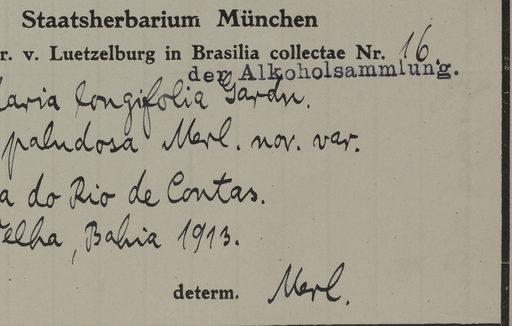 Staatsherbarium München
r. v. Luetzelburg in Brasilia collectae Nr. 16
der Alkoholsammlung.
laria longifolia Gardn.
paludosa Merl. nov. var.
a do Rio de Contas.
elha, Bahia 1913.
determ. Merl.